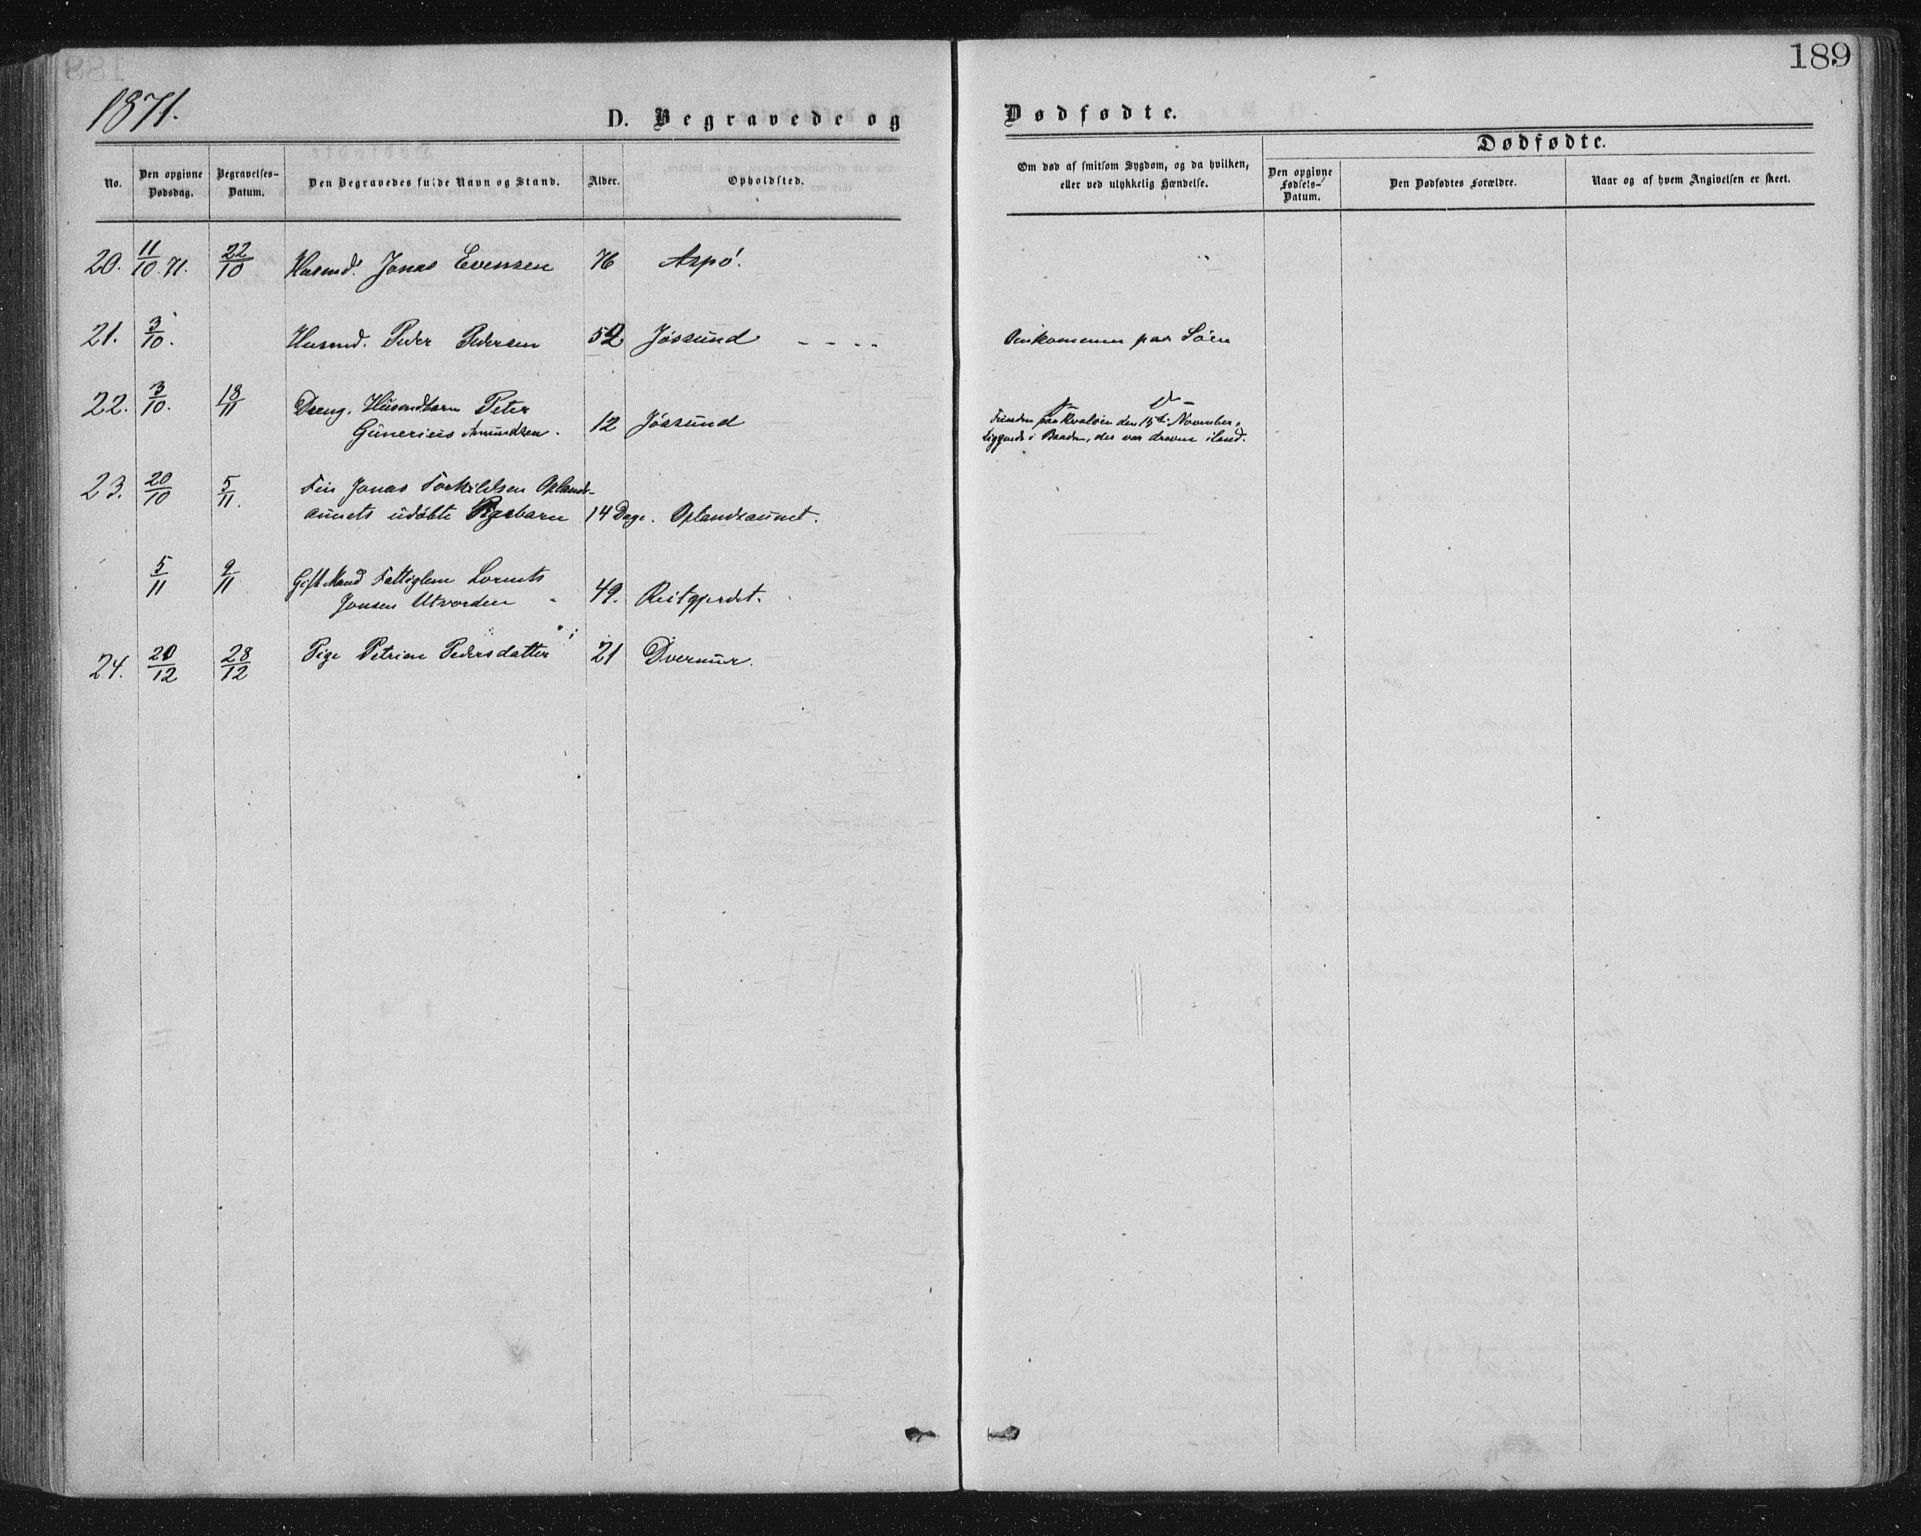 189
1871.
D. Begravede og Dødfødte.
Dødfødte.
No.
Den opgivne Dødsdag.
Begravelses-Datum.
Den Begravedes fulde Navn og Stand.
Alder.
Opholdsted.
Om død af smitsom Sygdom, og da hvilken, eller ved ulykkelig Hændelse.
Den opgivne Fødsels-Datum.
Den Dødfødtes Forældre.
Naar og af hvem Angivelsen er skeet.
20. 11/10.71. 22/10 Husmd. Jonas Evensen 76 Aspö.
21. 3/10. Husmd. Peder Pedersen 52 Jössund - - - - Omkommen paa Söen
22. 3/10. 18/11 Dreng. Husmdbarn Peter
Günerius Amundsen. 12 Jössund
Funden paa Kvalöen den 15de November,
liggende i Baaden, der var dreven iland.
23. 20/10 5/11. Fin Jonas Torkildsen Oplands-
aunets udöbte Pigebarn 14 Dage. Oplandsaunet.
5/11 9/11 Gift Mand Fattiglem Lornts
Jonsen Utvorden 49. Reitgjerdet.
24. 20/12 28/12 Pige Petrine Pedersdatter 21 Dvernur.